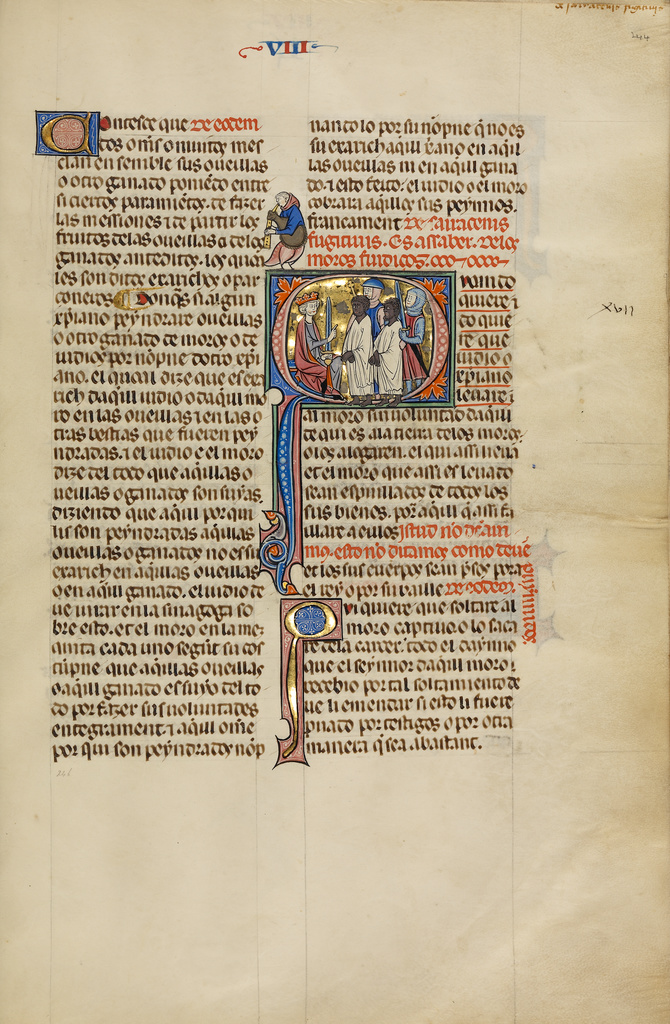 VIII
244
Contesce que de eodem
dos omes o muitos mes
clan ensemble sus oueillas
o otro ganado poniendo entre
si ciertos paramientos de fazer
las messiones et de partir los
fruitos de las oueillas o de los
ganados anteditos, los quoa
les son ditos exarichos o par
coneros Doncas si algun
xpiano peyndrare oueillas
o otro ganado de moros o de
iudios por nompne dotro xpi
ano, el quoal dize que es exa
rich daquil iudio o daquil mo
ro en las oueillas et en las o
tras bestias que fueren pey
ndradas, et el iudio o el moro
dize del todo que aqillas o
ueillas o ganados son suyas,
diziendo que aquil por qui
li son peyndradas aqillas
oueillas o ganado no es su
exarich en aqillas oueillas
o en aquil ganado, el iudio de
ue iurar en la sinagoga so
bre esto, et el moro en la mez
quita cada uno segunt su cos
tumpne que aqillas oueillas
o aquil ganado es suyo del to
do por fazer sus uoluntades
entegrament, et aquil omne
por qui son peyndrados nomp
nando lo por su nompne que no es
su exarich aquil xpiano en aqui
las oueillas ni en aquil gana
do, et esto feito, el iudio o el moro
cobrara aquillos sus peynnos,
francament de sarracenis
fugitiuis. Es assaber, delos
moros fuidicos.
Quando
quiere
do que
re que
iudio o
xpiano
leuare
al moro sin uoluntad daqui
de qui es a la tierra delos moros,
o los alogaren, el qui assi lieua
et el moro que assi es leuado
sean espuillados de todos los
sus bienes, por aquil que assi fa
illare a eillos Istud non dicimus.
mo, esto non ditamos como deue
et los sus cuerpos sean presos pora
el rey o por su baille de eodem
Qui quiere que soltare al
moro captiuo o lo saca
re de la carcer, todo el daynno
que el seynnor daquil moro
recebio por tal soltamiento de
ue li emendar si esto li fuere
prouado por testigos o por otra
manera que sea abastant.
XVII